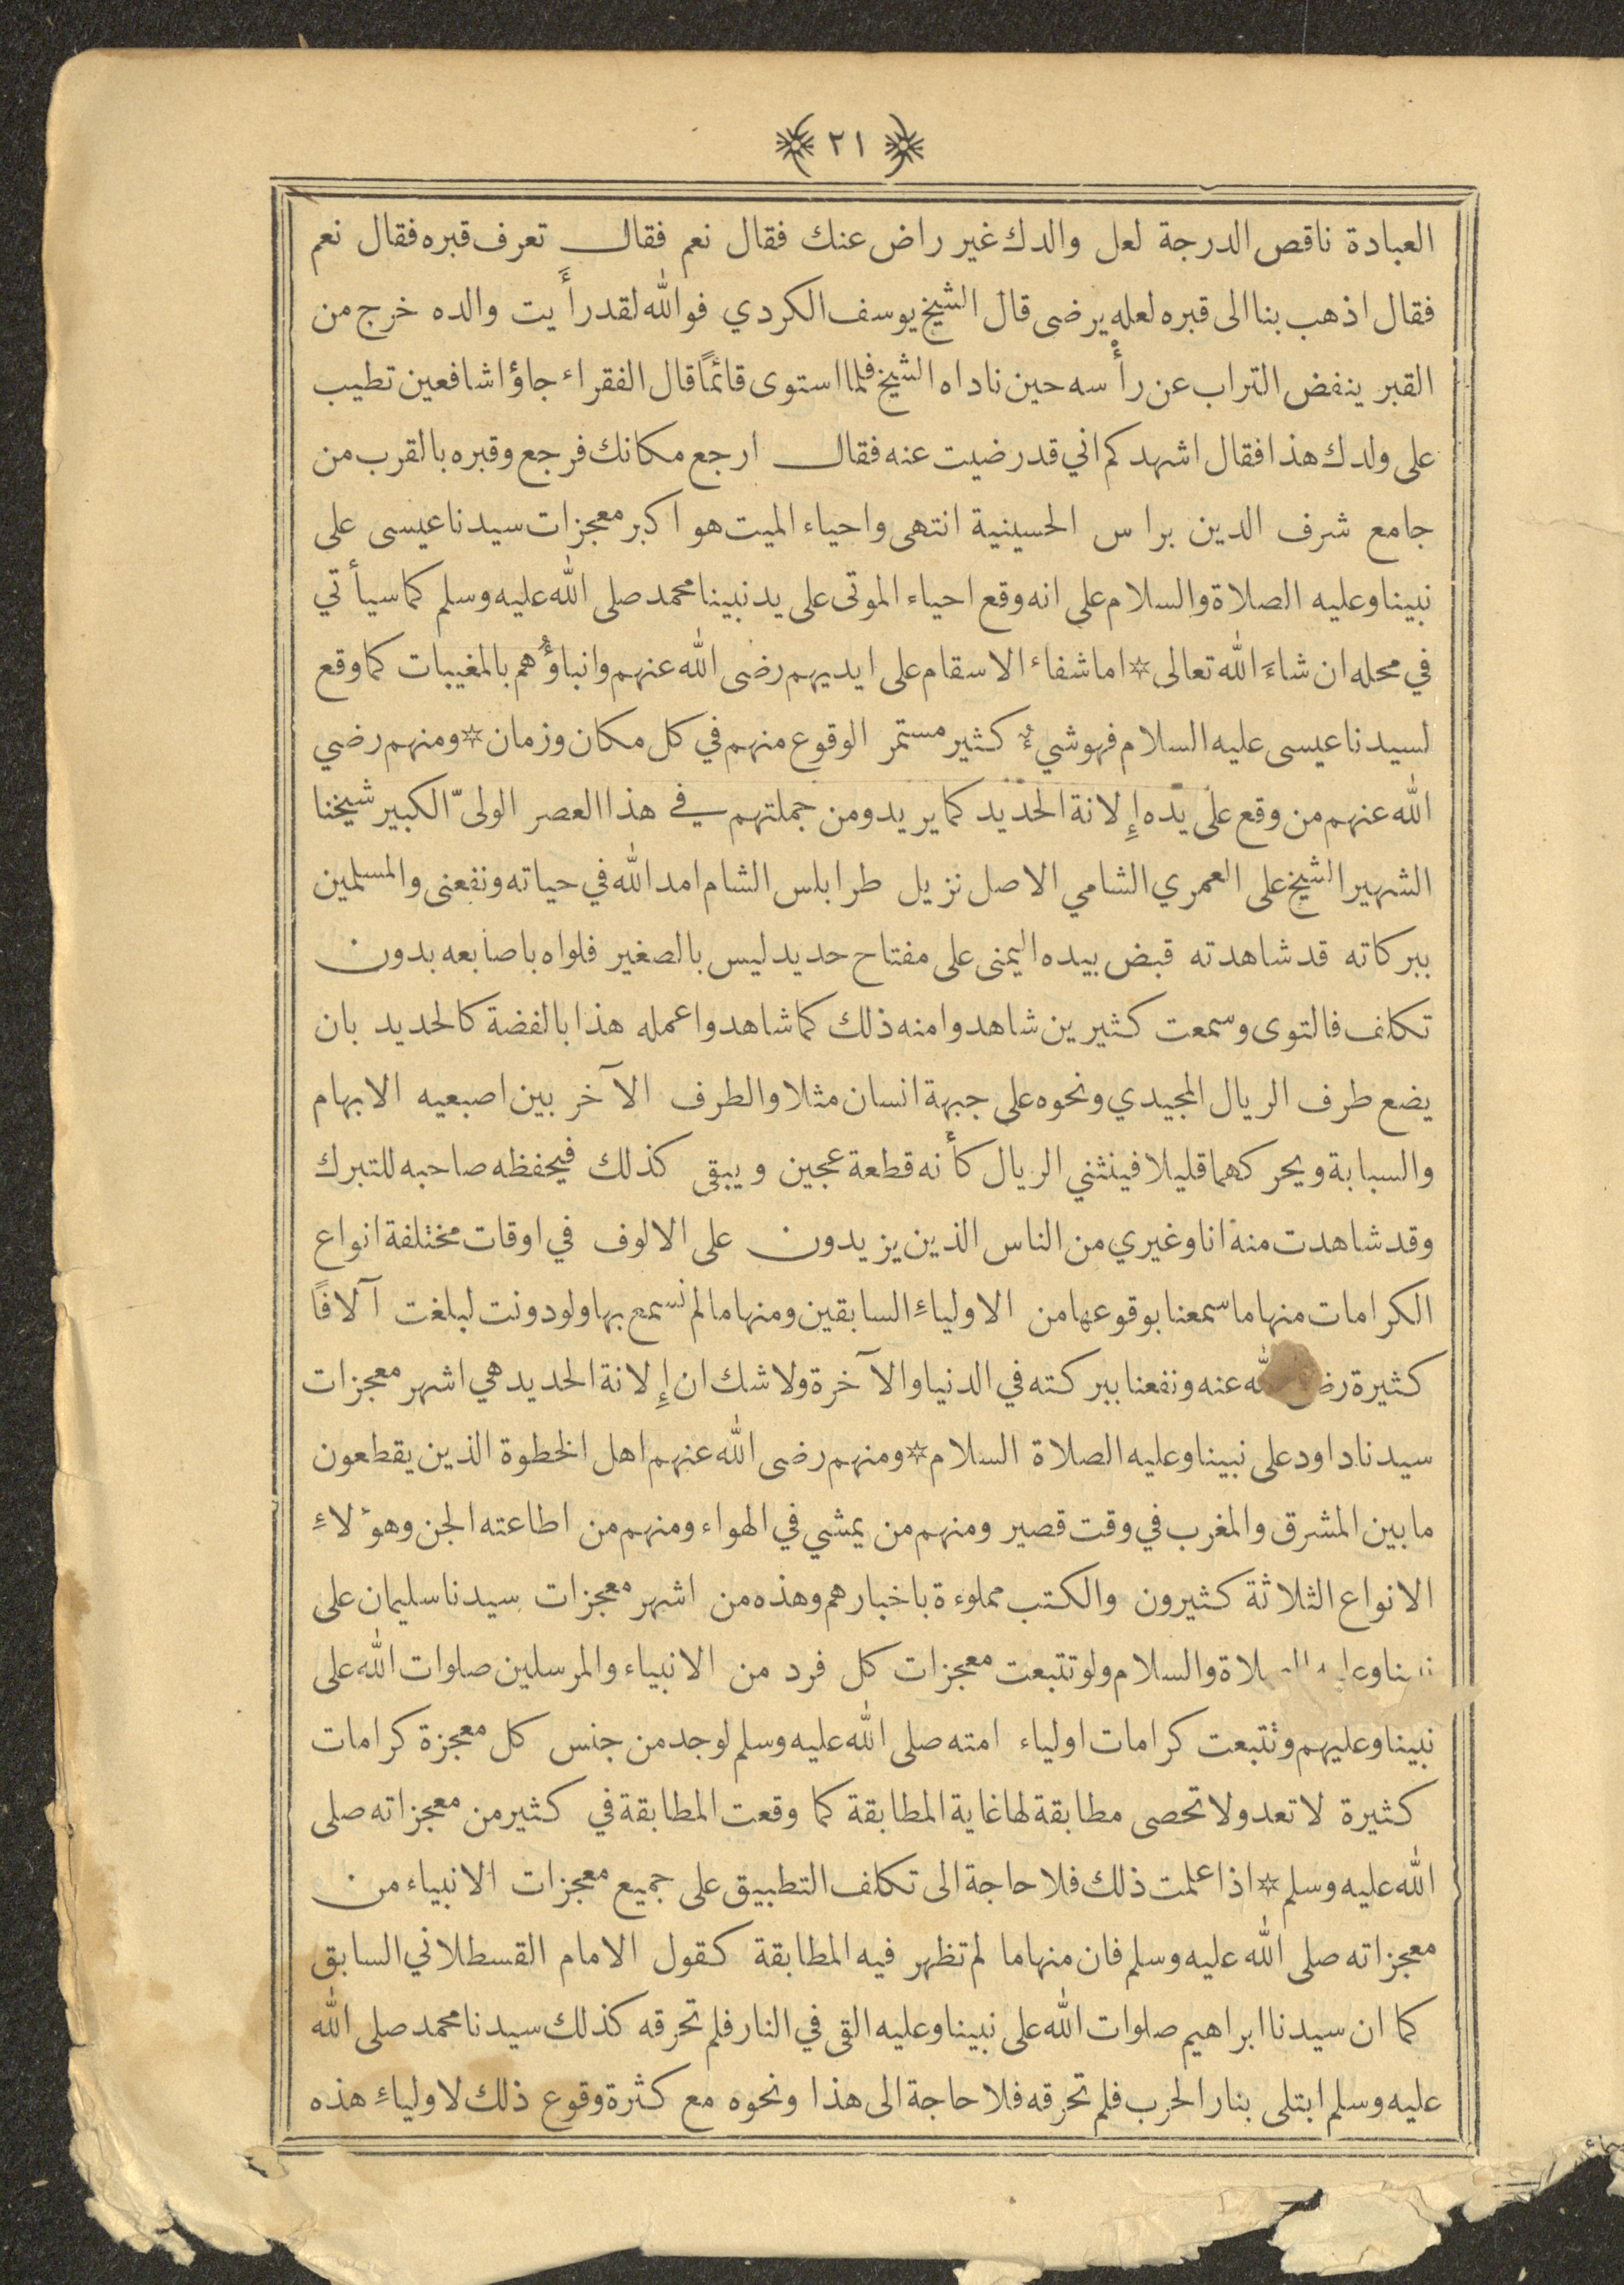 ٢١
العبادة ناقص الدرجة لعل والدك غير راض عنك فقال نعم فقال تعرف قبره فقال نعم
فقال اذهب بنا الى قبره لعله يرضى قال الشيخ يوسف الكردي فوالله لقد رأَيت والده خرج من
القبر ينفض التراب عن رأْسه حين ناداه الشيخ فلما استوى قائمًا قال الفقراء جاؤا شافعين تطيب
على ولدك هذا فقال اشهدكم اني قد رضيت عنه فقال ارجع مكانك فرجع وقبره بالقرب من
جامع شرف الدين براس الحسينية انتهى واحياء الميت هو اكبر معجزات سيدنا عيسى على
نبينا وعليه الصلاة والسلام على انه وقع احياء الموتى على يد نبينا محمد صلى الله عليه وسلم كما سيأتي
في محله ان شاءَ الله تعالى * اما شفاء الاسقام على ايديهم رضى الله عنهم وانباؤُهم بالمغيبات كما وقع
لسيدنا عيسى عليه السلام فهو شيءٌ كثير مستمر الوقوع منهم في كل مكان وزمان * ومنهم رضي
الله عنهم من وقع على يده إِلانة الحديد كما يريد ومن جملتهم في هذا العصر الولىّ الكبير شيخنا
الشهير الشيخ على العمري الشامي الاصل نزيل طرابلس الشام امد الله في حياته ونفعنى والمسلمين
ببركاته قد شاهدته قبض بيده اليمنى على مفتاح حديد ليس بالصغير فلواه باصابعه بدون
تكلف فالتوى وسمعت كثيرين شاهدوا منه ذلك كما شاهدوا عمله هذا بالفضة كالحديد بان
يضع طرف الريال المجيدي ونحوه على جبهة انسان مثلا والطرف الآخر بين اصبعيه الابهام
والسبابة ويحركهما قليلا فينثني الريال كأنه قطعة عجين ويبقى كذلك فيحفظه صاحبه للتبرك
وقد شاهدت منه انا وغيري من الناس الذين يزيدون على الالوف في اوقات مختلفة انواع
الكرامات منها ما سمعنا بوقوعها من الاولياءِ السابقين ومنها ما لم نسمع بها ولو دونت لبلغت آلافًا
كثيرة رضى الله عنه ونفعنا ببركته في الدنيا والآخرة ولا شك ان إِلانة الحديد هي اشهر معجزات
سيدنا داود على نبينا وعليه الصلاة السلام * ومنهم رضى الله عنهم اهل الخطوة الذين يقطعون
ما بين المشرق والمغرب في وقت قصير ومنهم من يمشي في الهواء ومنهم من اطاعته الجن وهؤلاءِ
الانواع الثلاثة كثيرون والكتب مملوءة باخبارهم وهذه من اشهر معجزات سيدنا سليمان على
نبينا وعليه الصلاة والسلام ولو تتبعت معجزات كل فرد من الانبياء والمرسلين صلوات الله على
نبينا وعليهم وتتبعت كرامات اولياء امته صلى الله عليه وسلم لوجد من جنس كل معجزة كرامات
كثيرة لا تعد ولا تحصى مطابقة لها غاية المطابقة كما وقعت المطابقة في كثير من معجزاته صلى
الله عليه وسلم * اذا علمت ذلك فلا حاجة الى تكلف التطبيق على جميع معجزات الانبياء من
معجزاته صلى الله عليه وسلم فان منها ما لم تظهر فيه المطابقة كقول الامام القسطلاني السابق
كما ان سيدنا ابراهيم صلوات الله على نبينا وعليه القى في النار فلم تحرقه كذلك سيدنا محمد صلى الله
عليه وسلم ابتلى بنار الحرب فلم تحرقه فلا حاجة الى هذا ونحوه مع كثرة وقوع ذلك لاولياءِ هذه